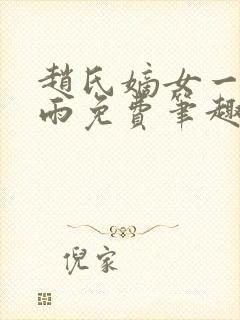 趙氏嫡女一
雨免費筆趣
倪家